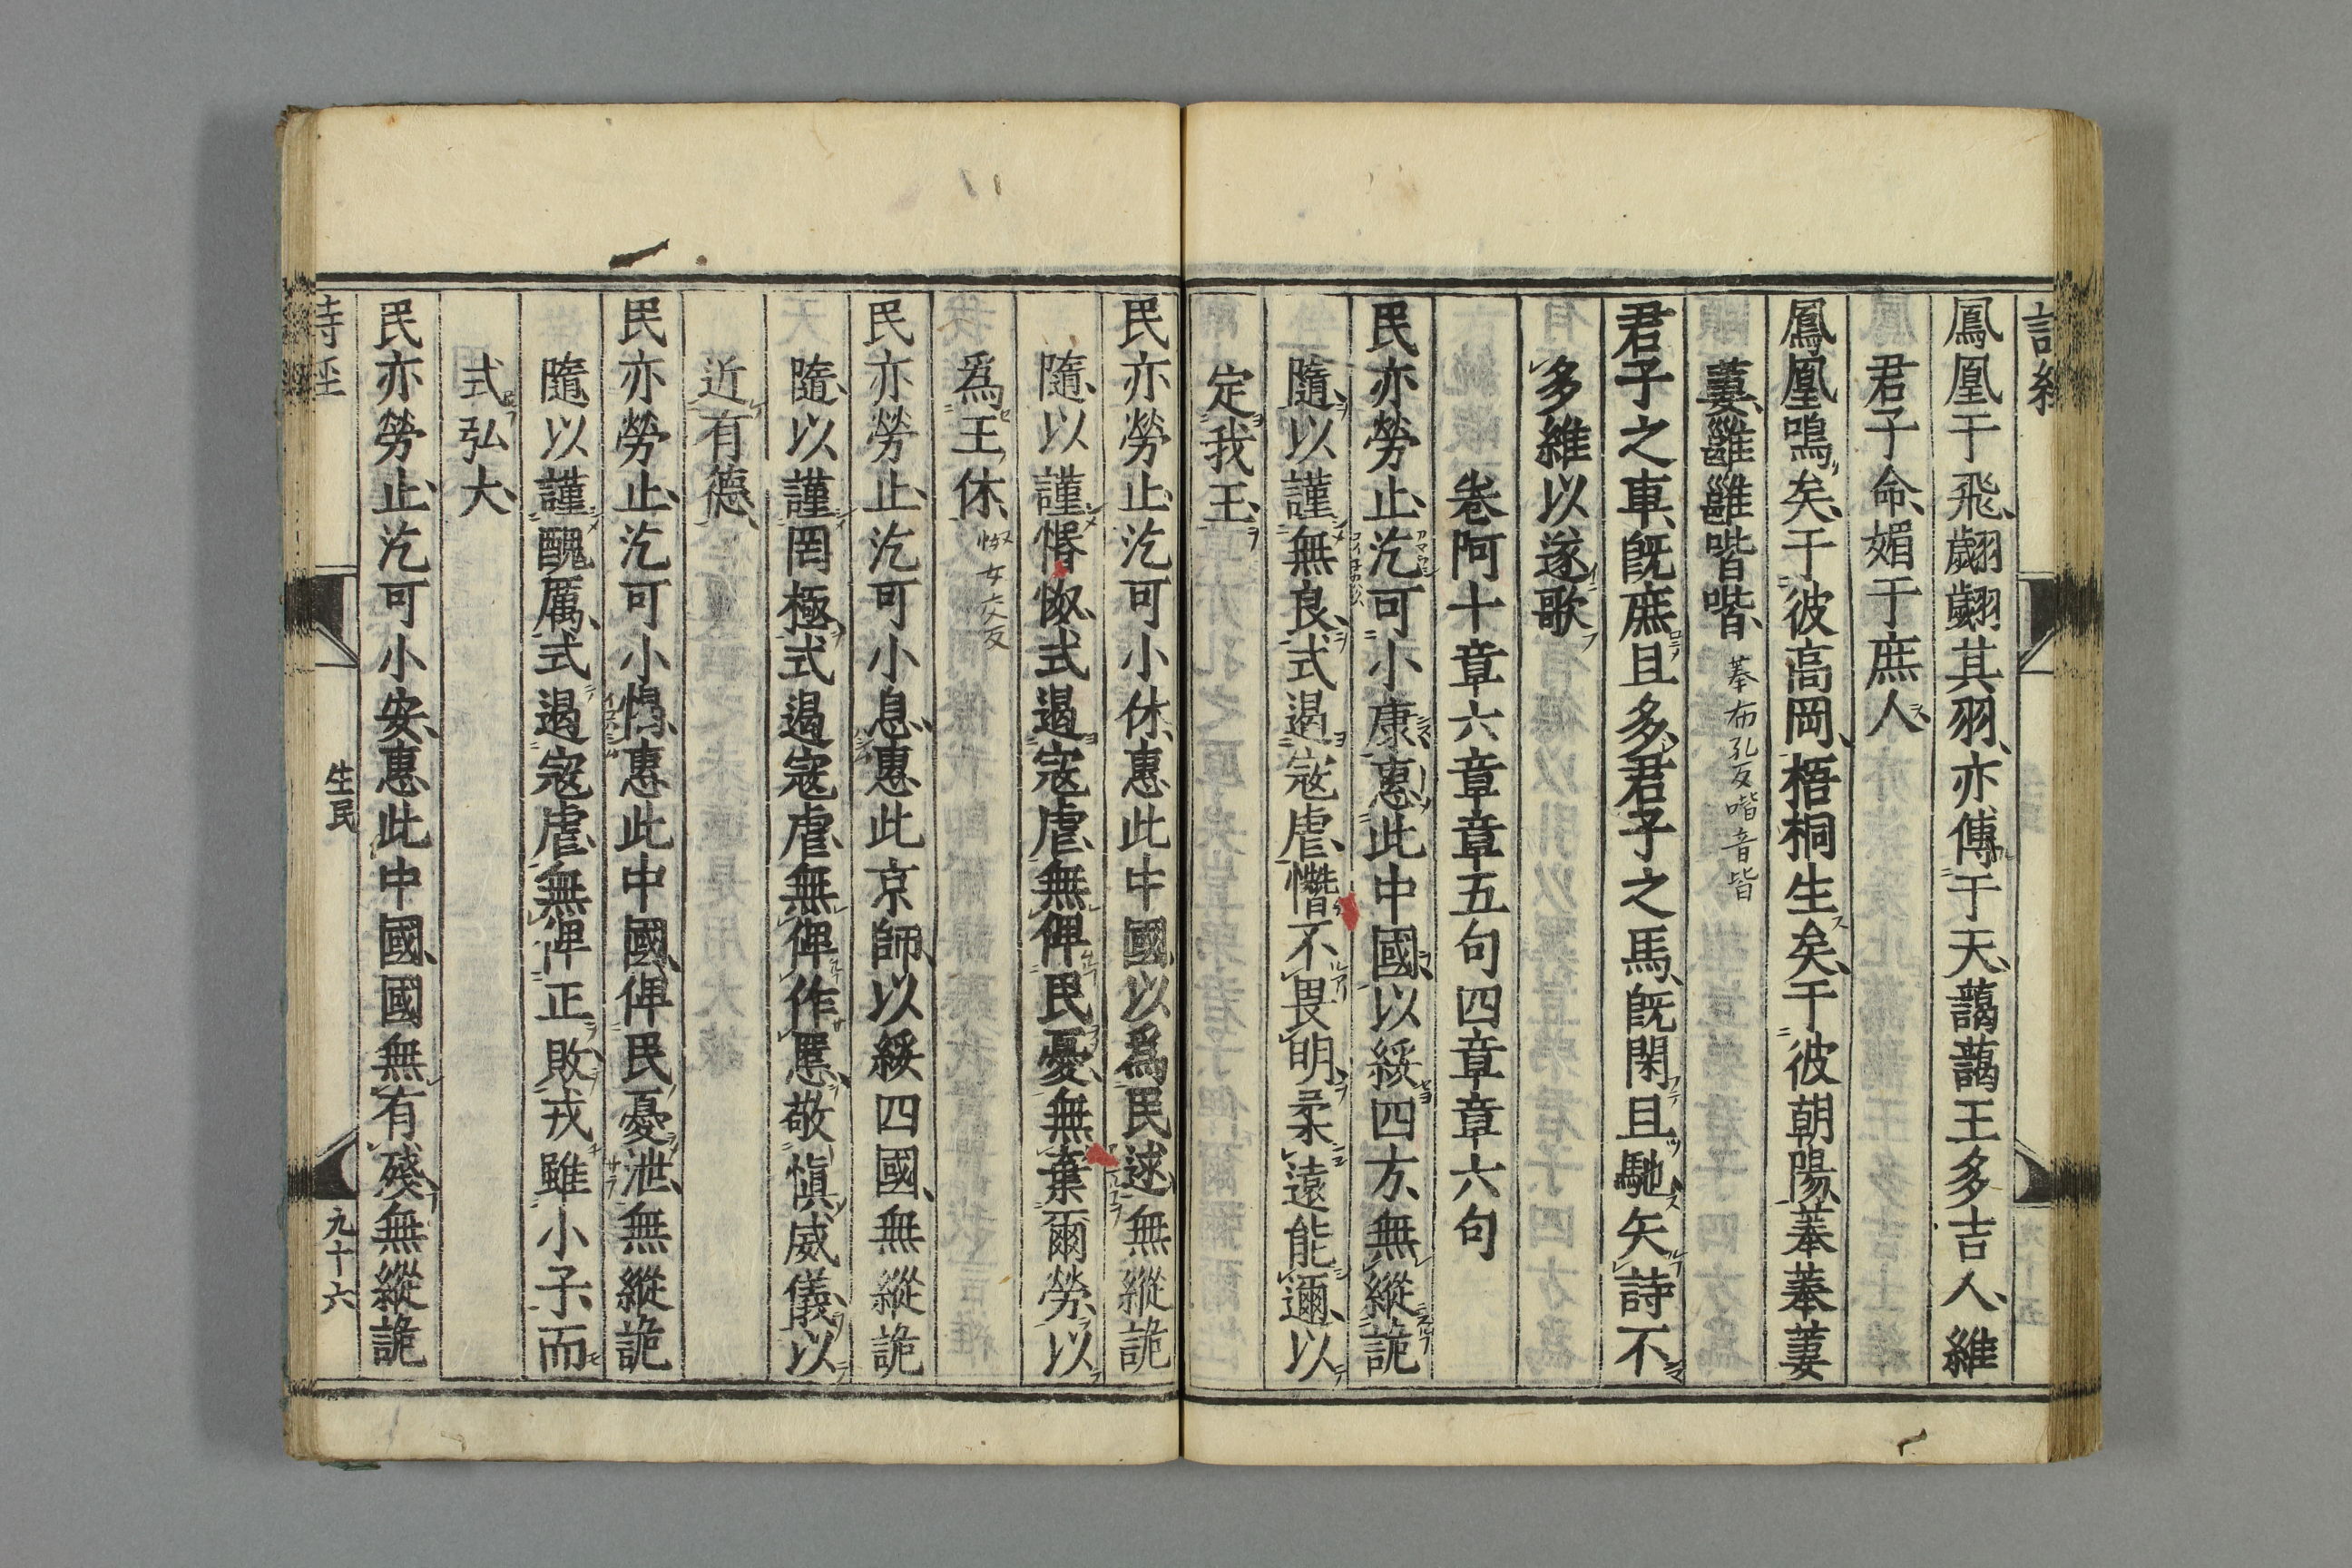 鳳凰于飛、翽翽其羽、亦傅于天、藹藹王多吉人、維
君子命、媚于庶人、
鳳凰鳴矣、于彼高岡、梧桐生矣、于彼朝陽、菶菶萋
萋、雝雝喈喈、菶布孔反喈音皆
君子之車、既庶且多、君子之馬、既閑且馳、矢詩不
多、維以遂歌
卷阿十章六章章五句四章章六句
民亦勞止、汔可小康、惠此中國、以綏四方、無縱詭
隨、以謹無良、式遏寇虐、憯不畏明、柔遠能邇、以
定我王、
民亦勞止、汔可小休、惠此中國、以爲民逑、無縱詭
隨、以謹惛怓、式遏寇虐、無俾民憂、無棄爾勞、以
爲王休、怓女交反
民亦勞止、汔可小息、惠此京師、以綏四國、無縱詭
隨、以謹罔極、式遏寇虐、無俾作慝、敬慎威儀、以
近有德、
民亦勞止、汔可小愒、惠此中國、俾民憂泄、無縱詭
隨、以謹醜厲、式遏寇虐、無俾正敗、戎雖小子、而
式弘大、
民亦勞止、汔可小安、惠此中國、國無有殘、無縱詭
詩經 生民 九十六